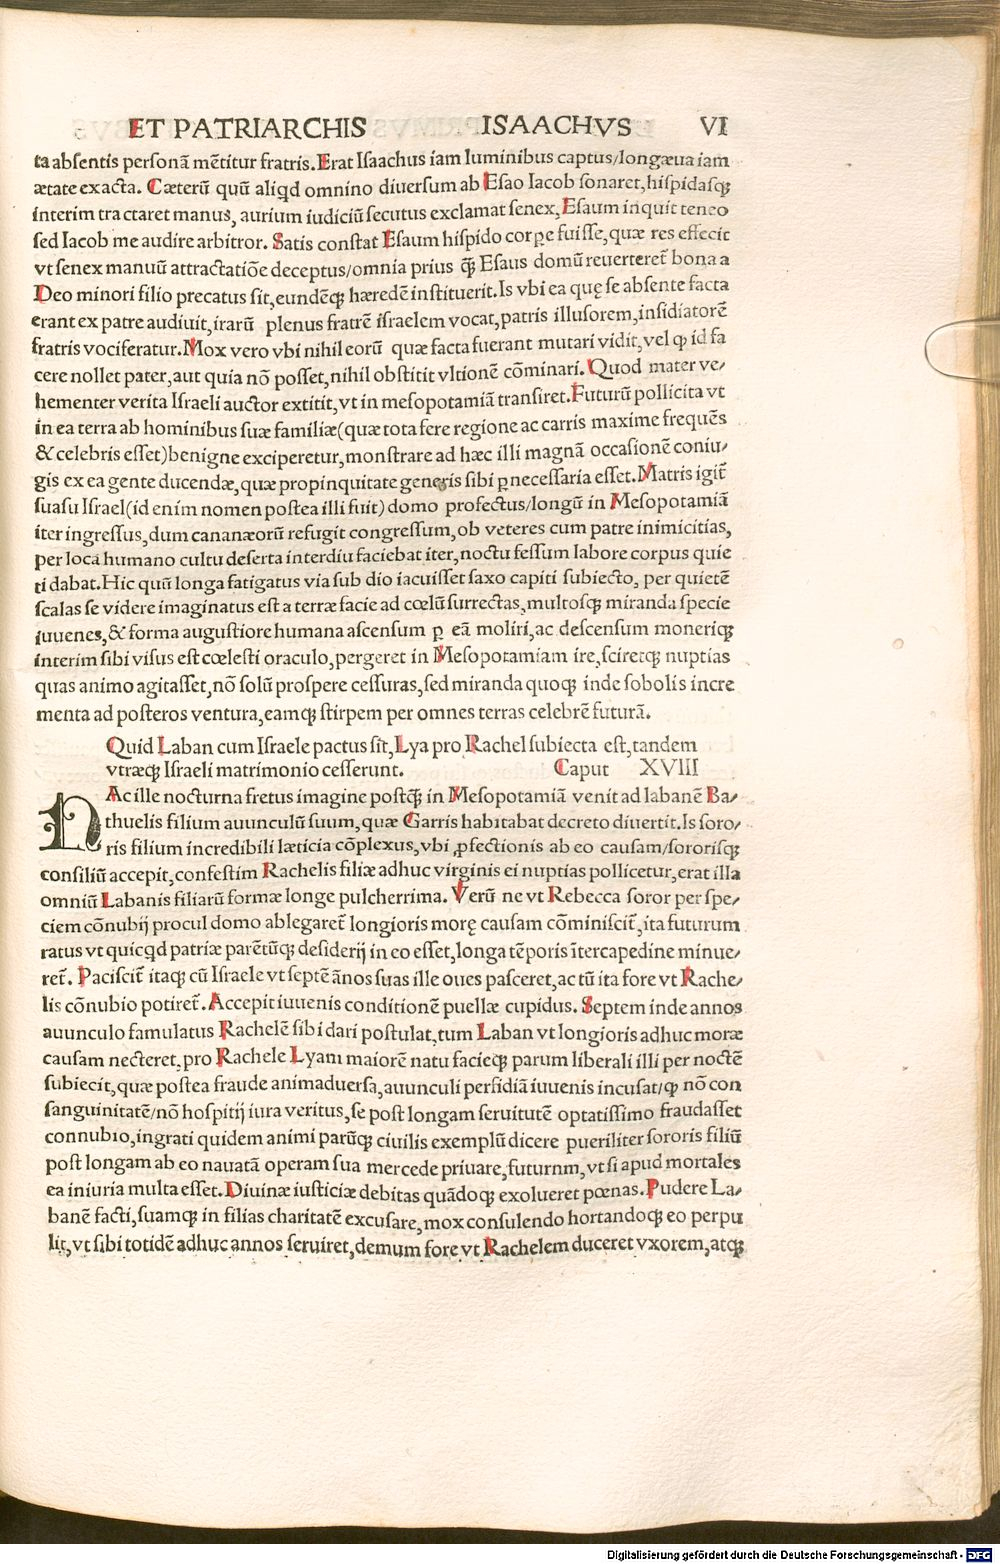 ET PATRIARCHIS ISAACHVS VI
ta absentis personā mētitur fratris. Erat Isaachus iam luminibus captus/longæua iam
ætate exacta. Cæterū quū aliqd omnino diuersum ab Esao Iacob sonaret, hispidasq;
interim tractaret manus, aurium iudiciū secutus exclamat senex, Esaum inquit teneo
sed Iacob me audire arbitror. Satis constat Esaum hispido corꝑe fuisse, quæ res effecit
vt senex manuū attractatiōe deceptus/omnia prius q̄ꝫ Esaus domū reuerteret̄ bona a
Deo minori filio precatus sit, eundēq; hæredē instituerit. Is vbi ea quę se absente facta
erant ex patre audiuit, irarū plenus fratrē israelem vocat, patris illusorem, insidiatorē
fratris vociferatur. Mox vero vbi nihil eorū quæ facta fuerant mutari vidit, vel ꝙ id fa
cere nollet pater, aut quia nō posset, nihil obstitit vltionē cōminari. Quod mater ve/
hementer verita Israeli auctor extitit, vt in mesopotamiā transiret. Futurū pollicita vt
in ea terra ab hominibus suæ familiæ(quæ tota fere regione ac carris maxime frequēs
& celebris esset)benigne exciperetur, monstrare ad hæc illi magnā occasionē coniu/
gis ex ea gente ducendæ, quæ propinquitate generis sibi ꝑnecessaria esset. Matris igit̄
suasu Israel(id enim nomen postea illi fuit) domo profectus/longū in Mesopotamiā
iter ingressus, dum cananæorū refugit congressum, ob veteres cum patre inimicitias,
per loca humano cultu deserta interdiu faciebat iter, noctu fessum labore corpus quie
ti dabat. Hic quū longa fatigatus via sub dio iacuisset saxo capiti subiecto, per quietē
scalas se videre imaginatus est a terræ facie ad cœlū surrectas, multosq; miranda specie
iuuenes, & forma augustiore humana ascensum ꝑ eā moliri, ac descensum moneriq;
interim sibi visus est cœlesti oraculo, pergeret in Mesopotamiam ire, sciretq; nuptias
quas animo agitasset, nō solū prospere cessuras, sed miranda quoq; inde sobolis incre
menta ad posteros ventura, eamq; stirpem per omnes terras celebrē futurā.
Quid Laban cum Israele pactus sit, Lya pro Rachel subiecta est, tandem
vtræq; Israeli matrimonio cesserunt. Caput XVIII
HAc ille nocturna fretus imagine postq̄ꝫ in Mesopotamiā venit ad labanē Ba/
thuelis filium auunculū suum, quæ Garris habitabat decreto diuertit. Is soro/
ris filium incredibili læticia cōplexus, vbi ꝓfectionis ab eo causam/sororisq;
consiliū accepit, confestim Rachelis filiæ adhuc virginis ei nuptias pollicetur, erat illa
omniū Labanis filiarū formæ longe pulcherrima. Verū ne vt Rebecca soror per spe/
ciem cōnubij procul domo ablegaret̄ longioris morę causam cōminiscit̄, ita futurum
ratus vt quicqd patriæ parētūq; desiderij in eo esset, longa tēporis ītercapedine minue/
ret̄. Paciscit̄ itaq; cū Israele vt septē ānos suas ille oues pasceret, ac tū ita fore vt Rache/
lis cōnubio potiret̄. Accepit iuuenis conditionē puellæ cupidus. Septem inde annos
auunculo famulatus Rachelē sibi dari postulat, tum Laban vt longioris adhuc moræ
causam necteret, pro Rachele Lyam maiorē natu facieq; parum liberali illi per noctē
subiecit, quæ postea fraude animaduersa, auunculi perfidiā iuuenis incusat/ꝙ nō con
sanguinitatē/nō hospitij iura veritus, se post longam seruitutē optatissimo fraudasset
connubio, ingrati quidem animi parūq; ciuilis exemplū dicere pueriliter sororis filiū
post longam ab eo nauatā operam sua mercede priuare, futurnm, vt si apud mortales
ea iniuria multa esset. Diuinæ iusticiæ debitas quādoq; exolueret pœnas. Pudere La/
banē facti, suamq; in filias charitatē excusare, mox consulendo hortandoq; eo perpu
lit, vt sibi totidē adhuc annos seruiret, demum fore vt Rachelem duceret vxorem, atq;
Digitalisierung gefördert durch die Deutsche Forschungsgemeinschaft - DFG